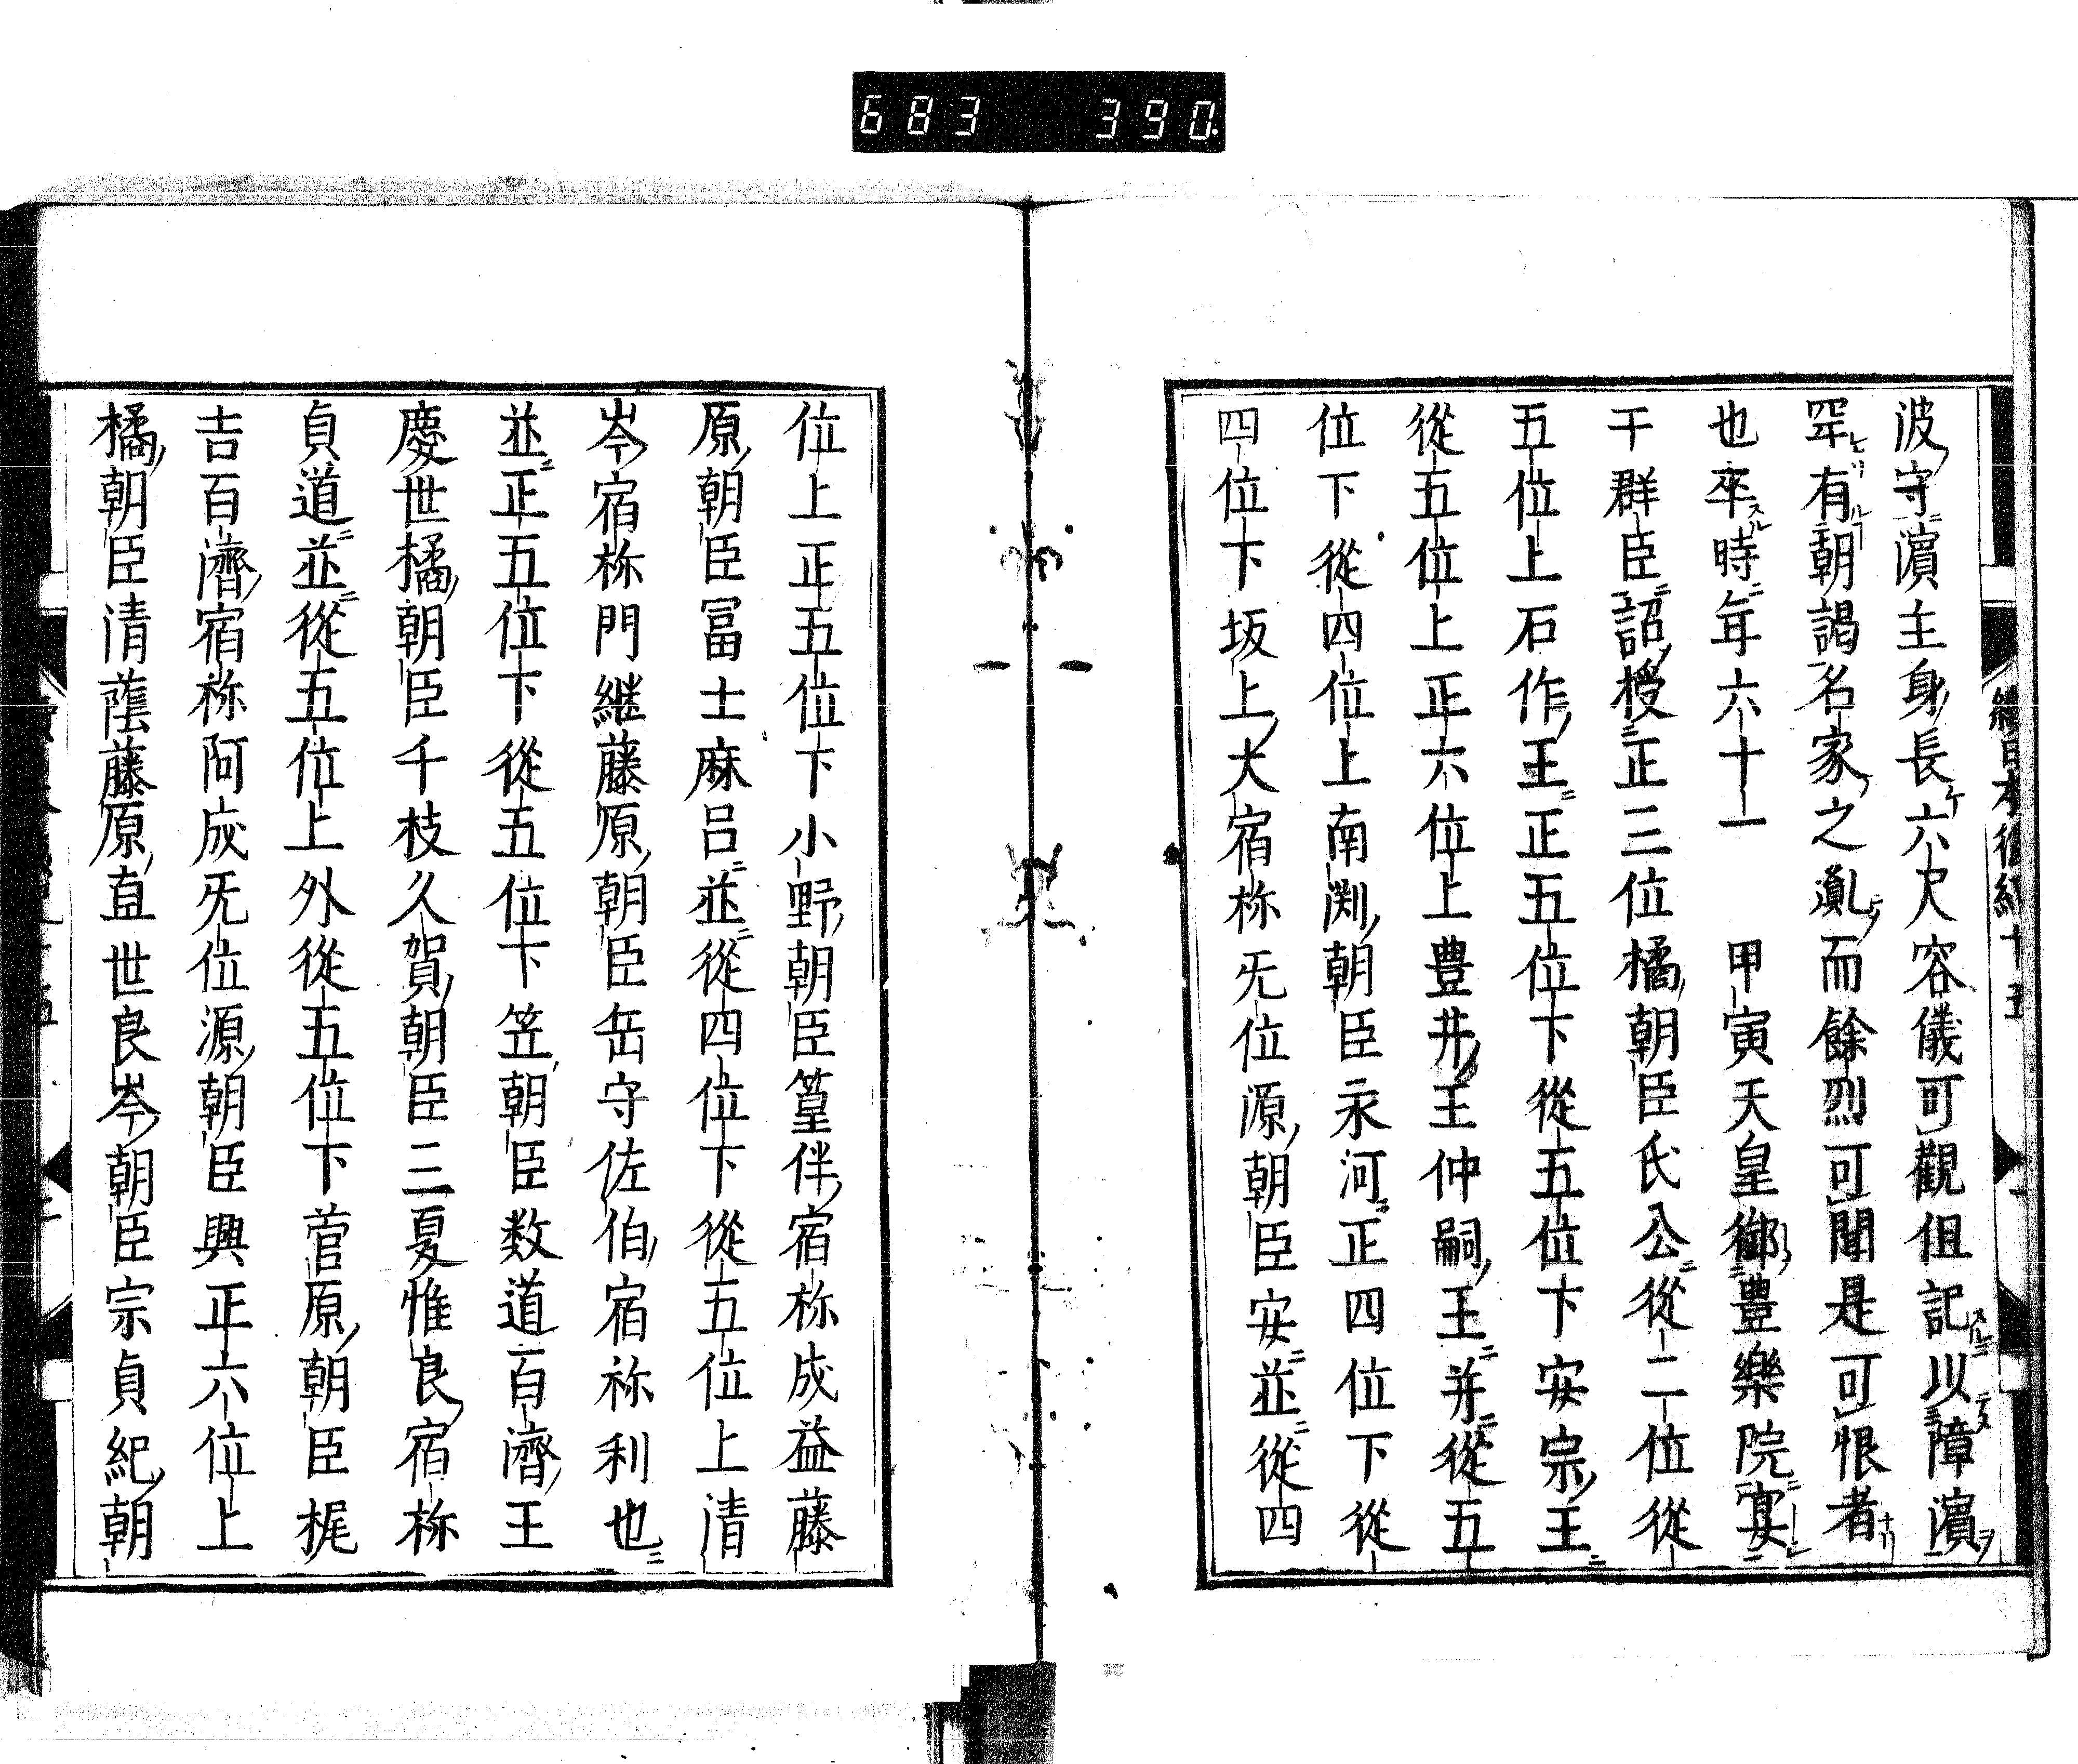 683 390
波守濵主身長六尺容儀可觀但記以障濵
罕有朝謁名家之胤而餘烈可聞是可恨者
也卒時年六十一 甲寅天皇御豊樂院宴
于群臣詔授正三位橘朝臣氏公從二位從
五位上石作王正五位下從五位下安宗王
從五位上正六位上豊井王仲嗣王并從五
位下從四位上南渕朝臣永河正四位下從
四位下坂上大宿祢旡位源朝臣安並從四
位上正五位下小野朝臣篁伴宿祢成益藤
原朝臣冨士麻呂並從四位下從五位上清
岑宿祢門継藤原朝臣岳守佐伯宿祢利也
並正五位下從五位下笠朝臣数道百濟王
慶世橘朝臣千枝久賀朝臣三夏惟良宿祢
貞道並從五位上外從五位下菅原朝臣梶
吉百濟宿祢阿成旡位源朝臣興正六位上
橘朝臣清蔭藤原直世良岑朝臣宗貞紀朝